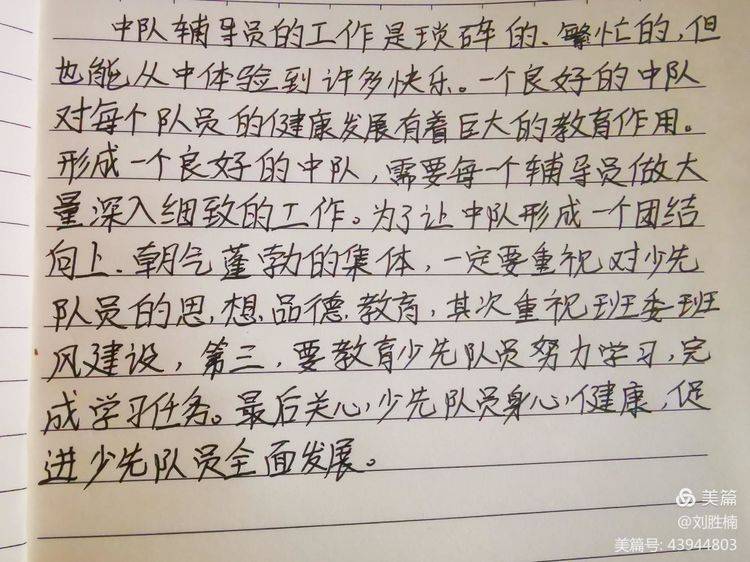 中队辅导员的工作是琐碎的、繁忙的,但
也能从中体验到许多快乐。一个良好的中队
对每个队员的健康发展有着巨大的教育作用。
形成一个良好的中队,需要每一个辅导员做大
量深入细致的工作。为了让中队形成一个团结
向上、朝气蓬勃的集体,一定要重视对少先
队员的思想品德教育,其次重视班委班
风建设,第三,要教育少先队员努力学习,完
成学习任务。最后关心少先队员身心健康,促
进少先队员全面发展。
美篇
@刘胜楠
美篇号: 43944803